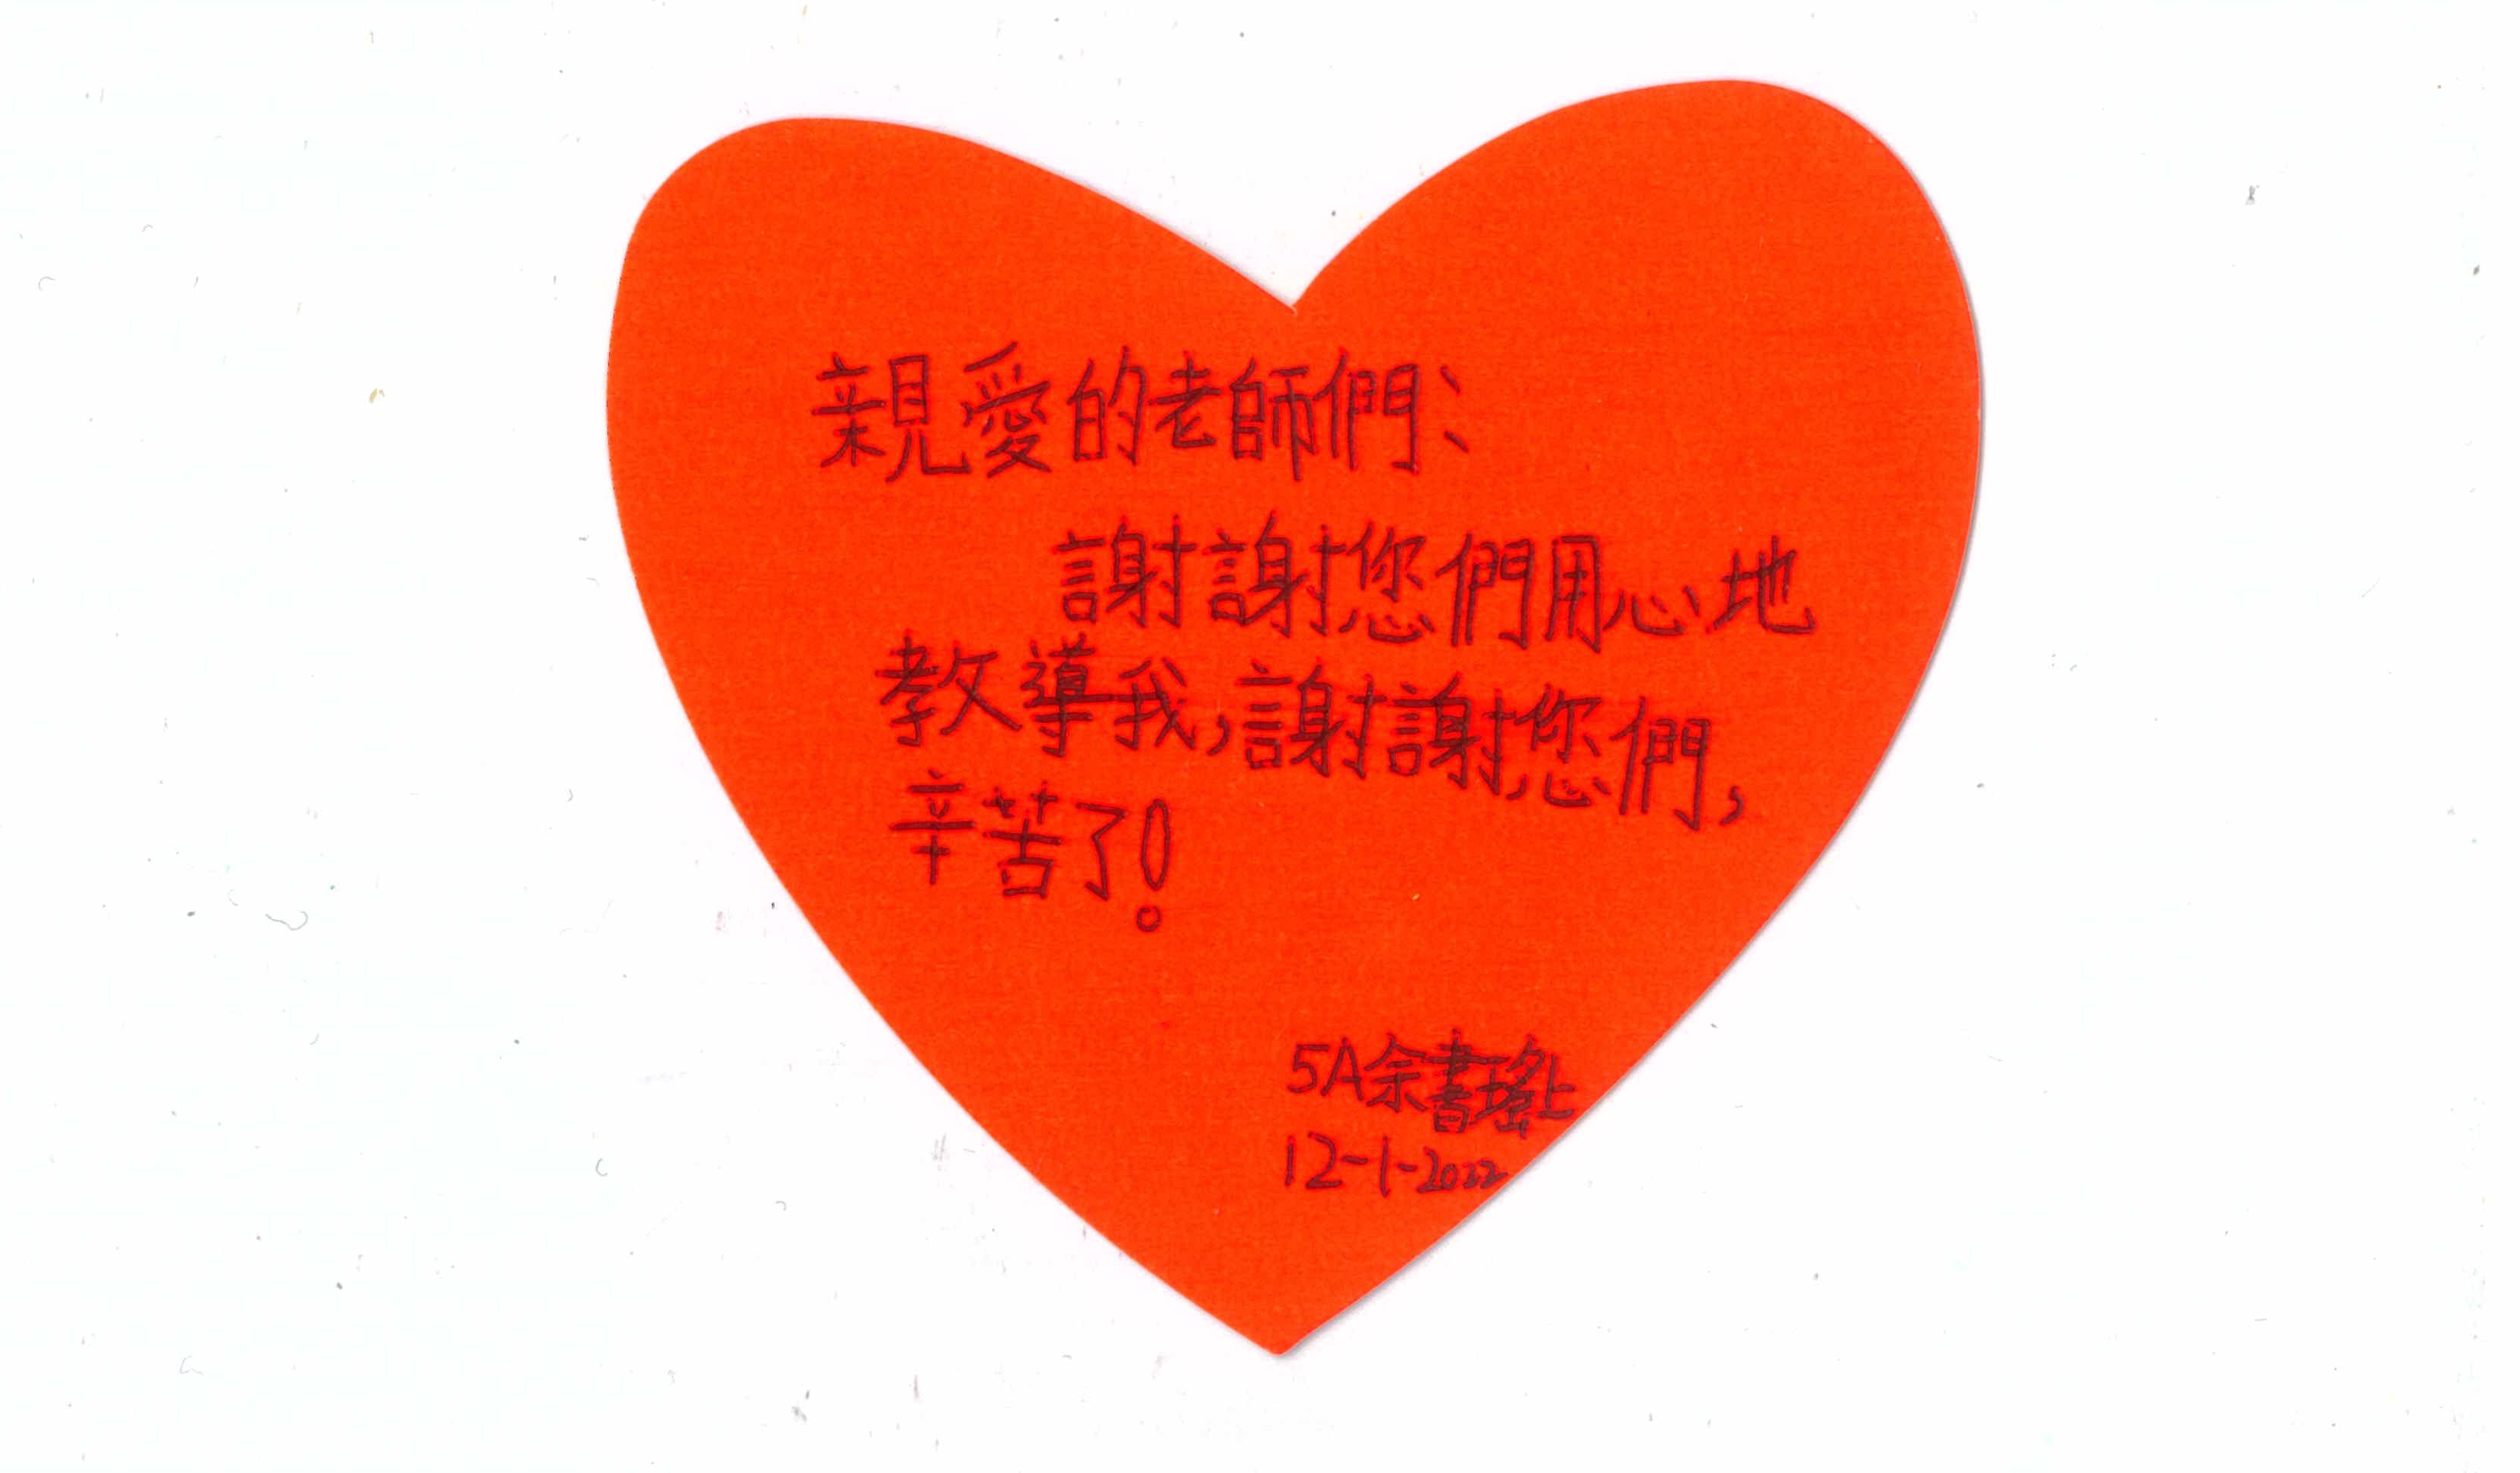 親愛的老師們：
謝謝您們用心地
教導我，謝謝您們，
辛苦了！
5A余書瑤上
12-1-2022